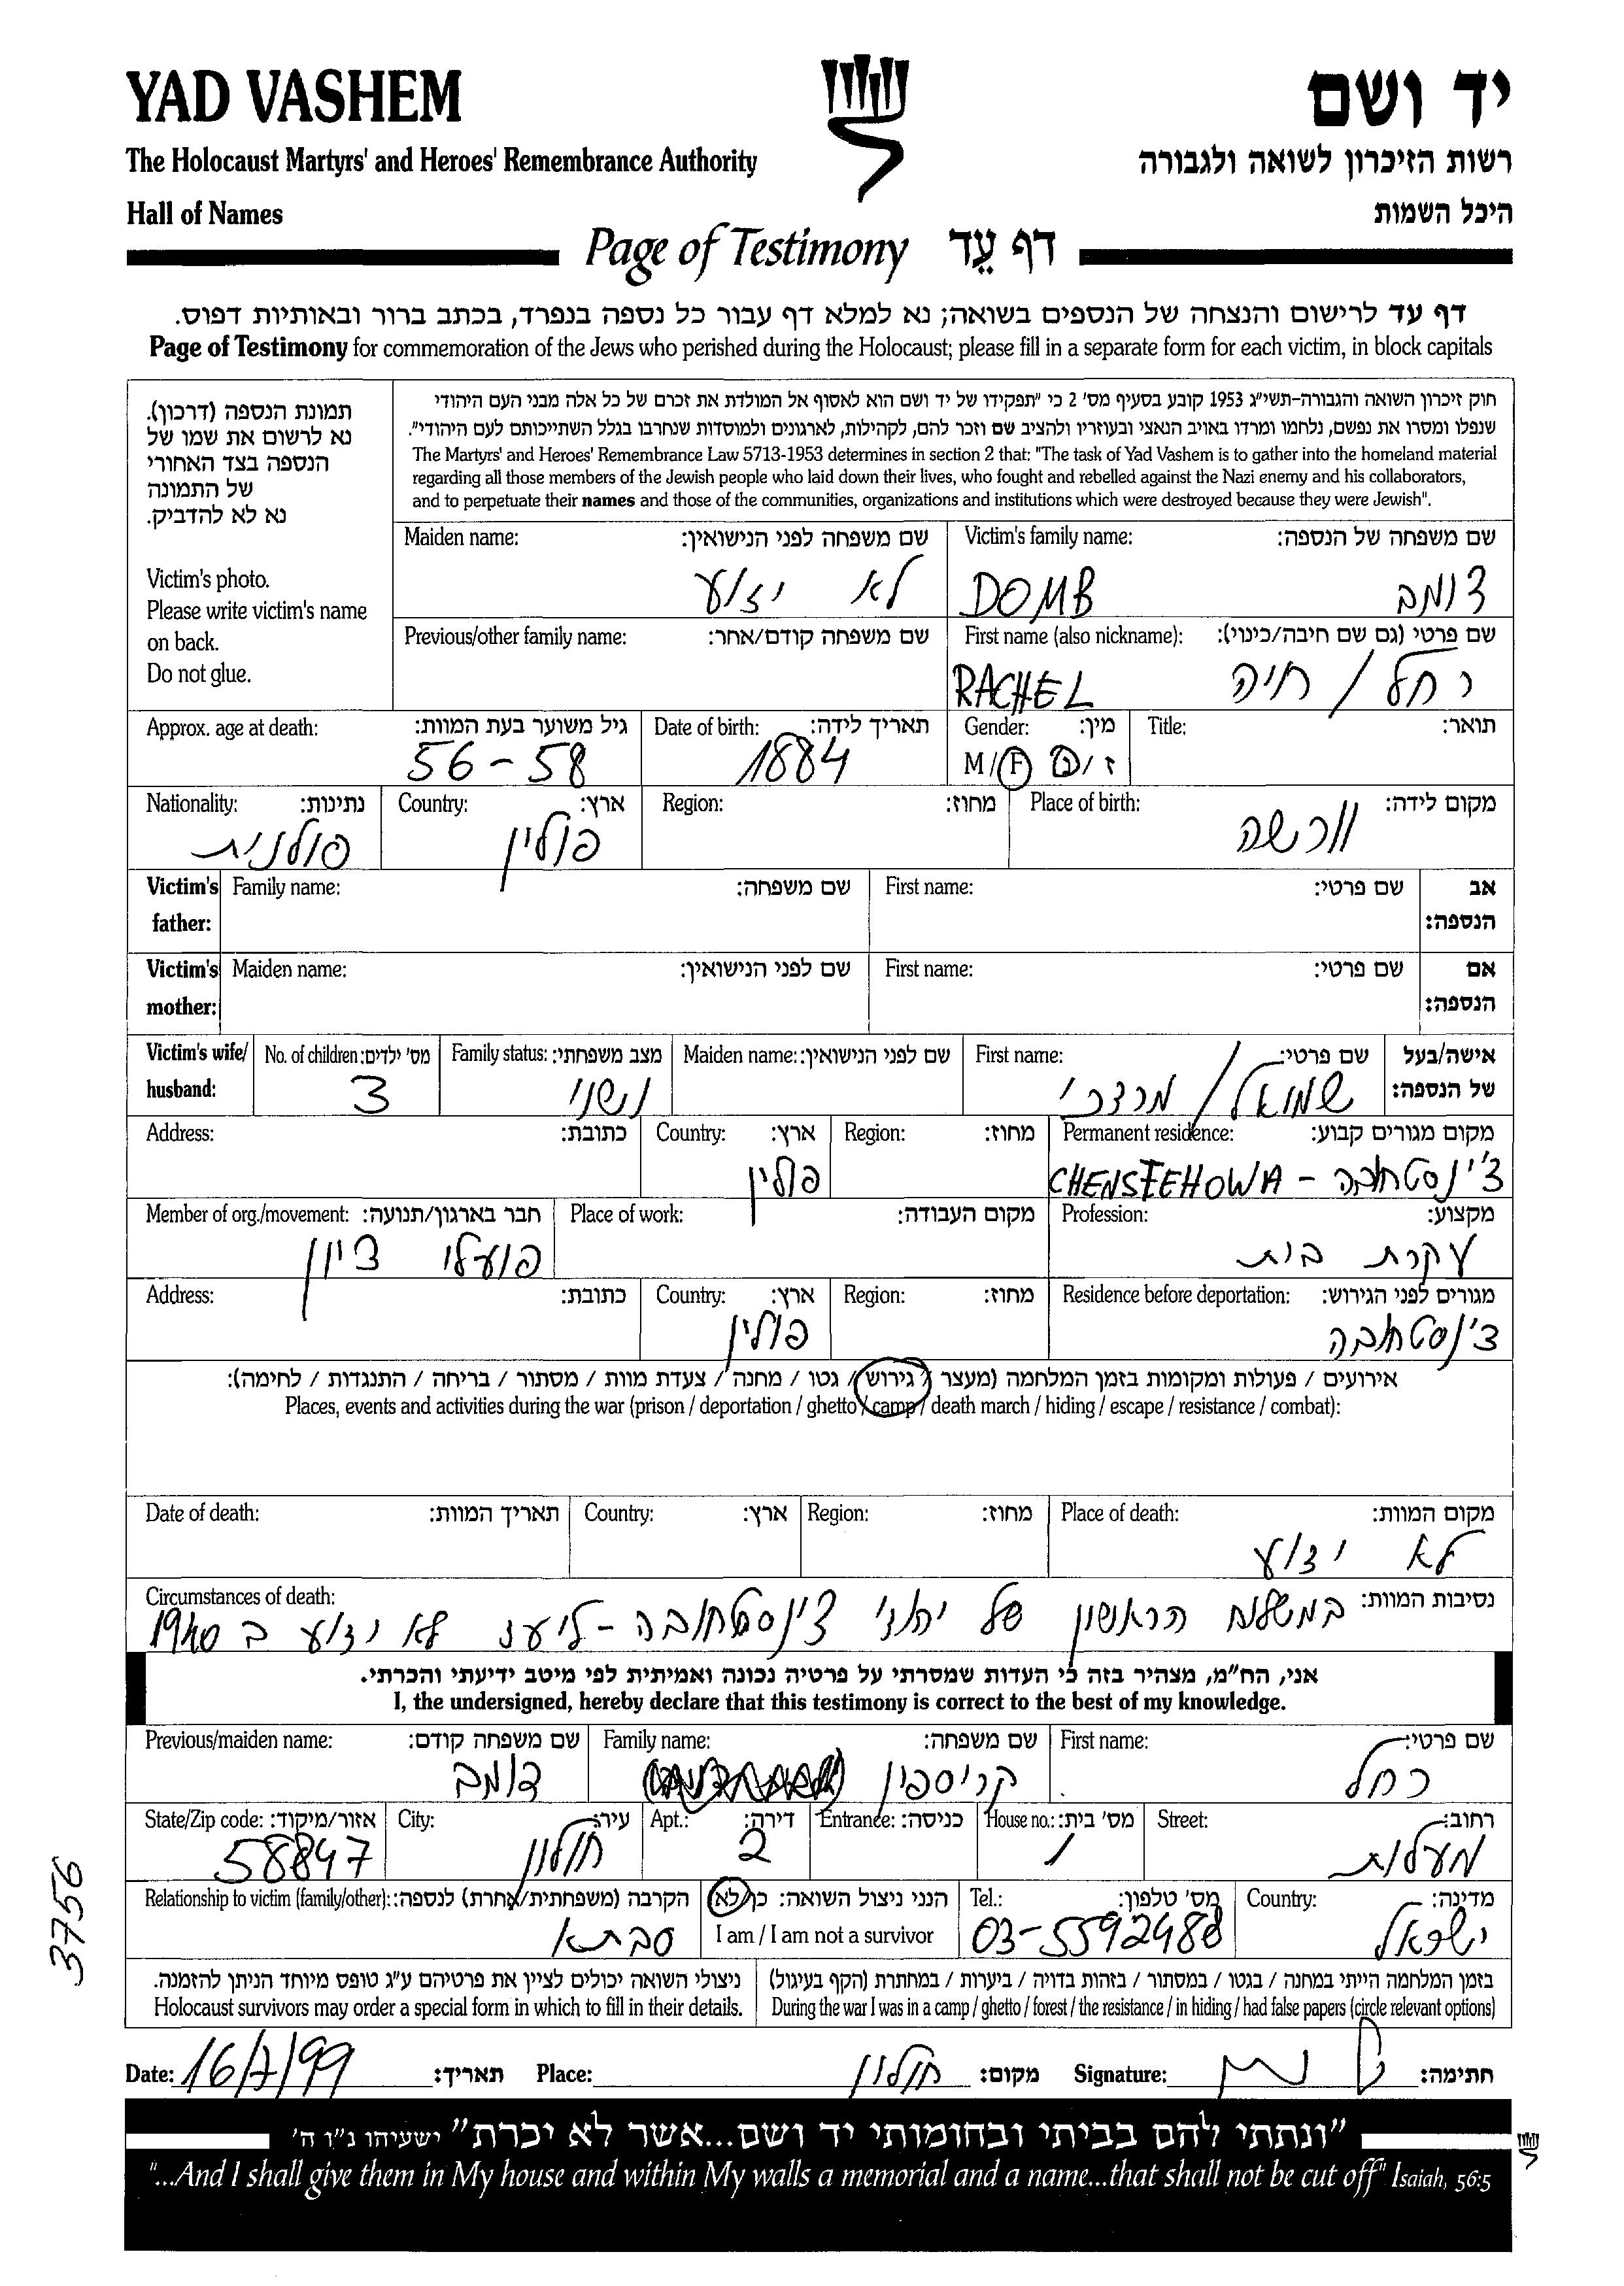 YAD VASHEM
יד ושם
The Holocaust Martyrs' and Heroes' Remembrance Authority
רשות הזיכרון לשואה ולגבורה
Hall of Names
היכל השמות
Page of Testimony דף עֵד
דף עד לרישום והנצחה של הנספים בשואה; נא למלא דף עבור כל נספה בנפרד, בכתב ברור ובאותיות דפוס.
Page of Testimony for commemoration of the Jews who perished during the Holocaust; please fill in a separate form for each victim, in block capitals
תמונת הנספה (דרכון).
נא לרשום את שמו של
הנספה בצד האחורי
של התמונה
נא לא להדביק.
Victim's photo.
Please write victim's name
on back.
Do not glue.
חוק זיכרון השואה והגבורה-תשי"ג 1953 קובע בסעיף מס' 2 כי "תפקידו של יד ושם הוא לאסוף אל המולדת את זכרם של כל אלה מבני העם היהודי
שנפלו ומסרו את נפשם, נלחמו ומרדו באויב הנאצי ובעוזריו ולהציב שם וזכר להם, לקהילות, לארגונים ולמוסדות שנחרבו בגלל השתייכותם לעם היהודי".
The Martyrs' and Heroes' Remembrance Law 5713-1953 determines in section 2 that: "The task of Yad Vashem is to gather into the homeland material
regarding all those members of the Jewish people who laid down their lives, who fought and rebelled against the Nazi enemy and his collaborators,
and to perpetuate their names and those of the communities, organizations and institutions which were destroyed because they were Jewish".
Victim's family name: שם משפחה של הנספה:
DOMB דומב
Maiden name: שם משפחה לפני הנישואין:
לא ידוע
First name (also nickname): שם פרטי (גם שם חיבה/כינוי):
RACHEL רחל / חיה
Previous/other family name: שם משפחה קודם/אחר:
Title: תואר:
Gender: מין:
M / F ז / נ
Date of birth: תאריך לידה:
1884
Approx. age at death: גיל משוער בעת המוות:
56 - 58
Place of birth: מקום לידה:
וורשה
Region: מחוז:
Country: ארץ:
פולין
Nationality: נתינות:
פולנית
Victim's father: אב הנספה:
Family name: שם משפחה:
First name: שם פרטי:
Victim's mother: אם הנספה:
Maiden name: שם לפני הנישואין:
First name: שם פרטי:
Victim's wife/ husband: אישה/בעל של הנספה:
First name: שם פרטי:
שמואל / מרדכי
Maiden name: שם לפני הנישואין:
Family status: מצב משפחתי:
נשוי
No. of children: מס' ילדים:
3
Permanent residence: מקום מגורים קבוע:
CHENSTEHOWA - צ'נסטחובה
Region: מחוז:
Country: ארץ:
פולין
Address: כתובת:
Profession: מקצוע:
עקרת בית
Place of work: מקום העבודה:
Member of org./movement: חבר בארגון/תנועה:
פועלי ציון
Residence before deportation: מגורים לפני הגירוש:
צ'נסטחובה
Region: מחוז:
Country: ארץ:
פולין
Address: כתובת:
אירועים / פעולות ומקומות בזמן המלחמה (מעצר / גירוש / גטו / מחנה / צעדת מוות / מסתור / בריחה / התנגדות / לחימה):
Places, events and activities during the war (prison / deportation / ghetto / camp / death march / hiding / escape / resistance / combat):
Place of death: מקום המוות:
לא ידוע
Region: מחוז:
Country: ארץ:
Date of death: תאריך המוות:
Circumstances of death: נסיבות המוות:
במשלוח הראשון של יהודי צ'נסטחובה - ליעד לא ידוע ב 1940
אני, הח"מ, מצהיר בזה כי העדות שמסרתי על פרטיה נכונה ואמיתית לפי מיטב ידיעתי והכרתי.
I, the undersigned, hereby declare that this testimony is correct to the best of my knowledge.
First name: שם פרטי:
רחל
Family name: שם משפחה:
קריספין
Previous/maiden name: שם משפחה קודם:
דומב
Street: רחוב:
מעלות
House no.: מס' בית:
1
Entrance: כניסה:
Apt.: דירה:
2
City: עיר:
חולון
State/Zip code: אזור/מיקוד:
58847
Country: מדינה:
ישראל
Tel.: מס' טלפון:
03-5592488
הנני ניצול השואה: כן/לא
I am / I am not a survivor
Relationship to victim (family/other): הקרבה (משפחתית/אחרת) לנספה:
סבתא
בזמן המלחמה הייתי במחנה / בגטו / במסתור / בזהות בדויה / ביערות / במחתרת (הקף בעיגול)
During the war I was in a camp / ghetto / forest / the resistance / in hiding / had false papers (circle relevant options)
ניצולי השואה יכולים לציין את פרטיהם ע"ג טופס מיוחד הניתן להזמנה.
Holocaust survivors may order a special form in which to fill in their details.
Date: 16/7/99 תאריך: Place: חולון מקום: Signature: חתימה:
"ונתתי להם בביתי ובחומותי יד ושם...אשר לא יכרת" ישעיהו נ"ו ה'
"...And I shall give them in My house and within My walls a memorial and a name...that shall not be cut off" Isaiah, 56:5
3756